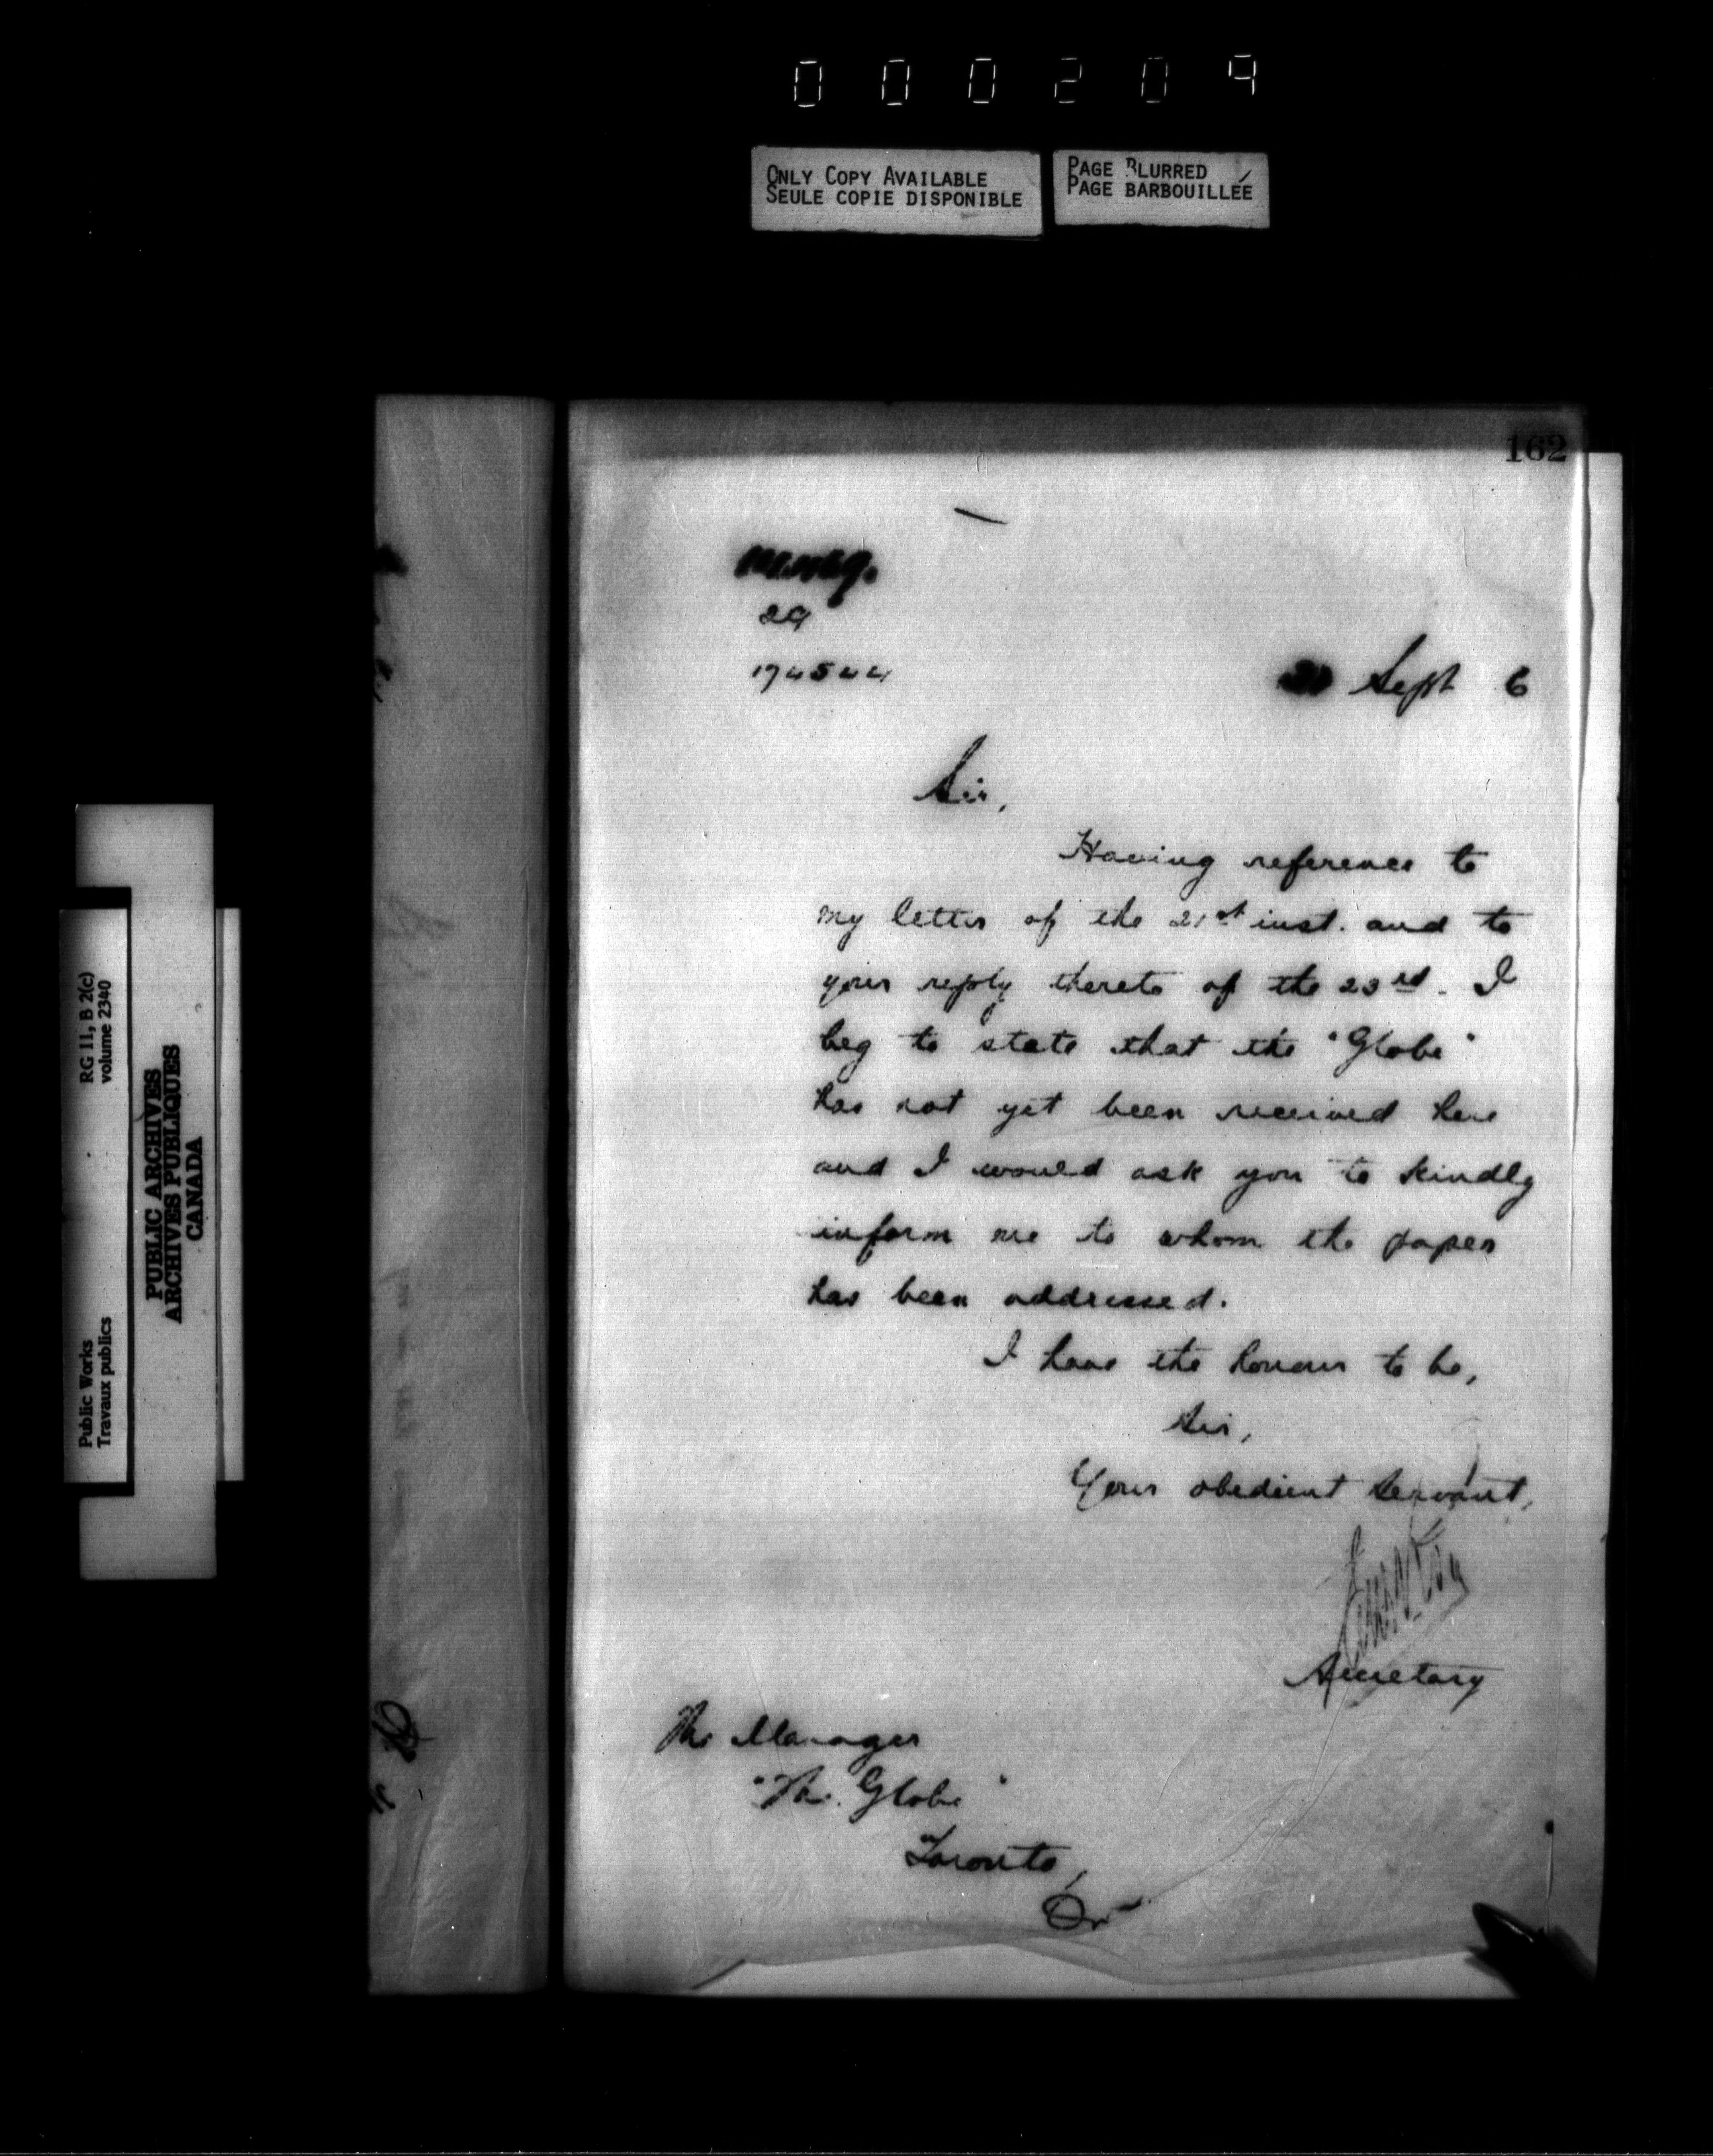 000209
ONLY COPY AVAILABLE
SEULE COPIE DISPONIBLE
PAGE BLURRED
PAGE BARBOUILLÉE
162
29
174544
Sept 6
Sir,
Having reference to
my letter of the 21st inst. and to
your reply thereto of the 23rd. I
beg to state that the "Globe"
has not yet been received here
and I would ask you to kindly
inform me to whom the paper
has been addressed.
I have the honour to be,
Sir,
Your obedient servant,
Secretary
The Manager
"The Globe"
Toronto,
On
Public Works
Travaux publics
RG 11, B 2(c)
volume 2340
PUBLIC ARCHIVES
ARCHIVES PUBLIQUES
CANADA